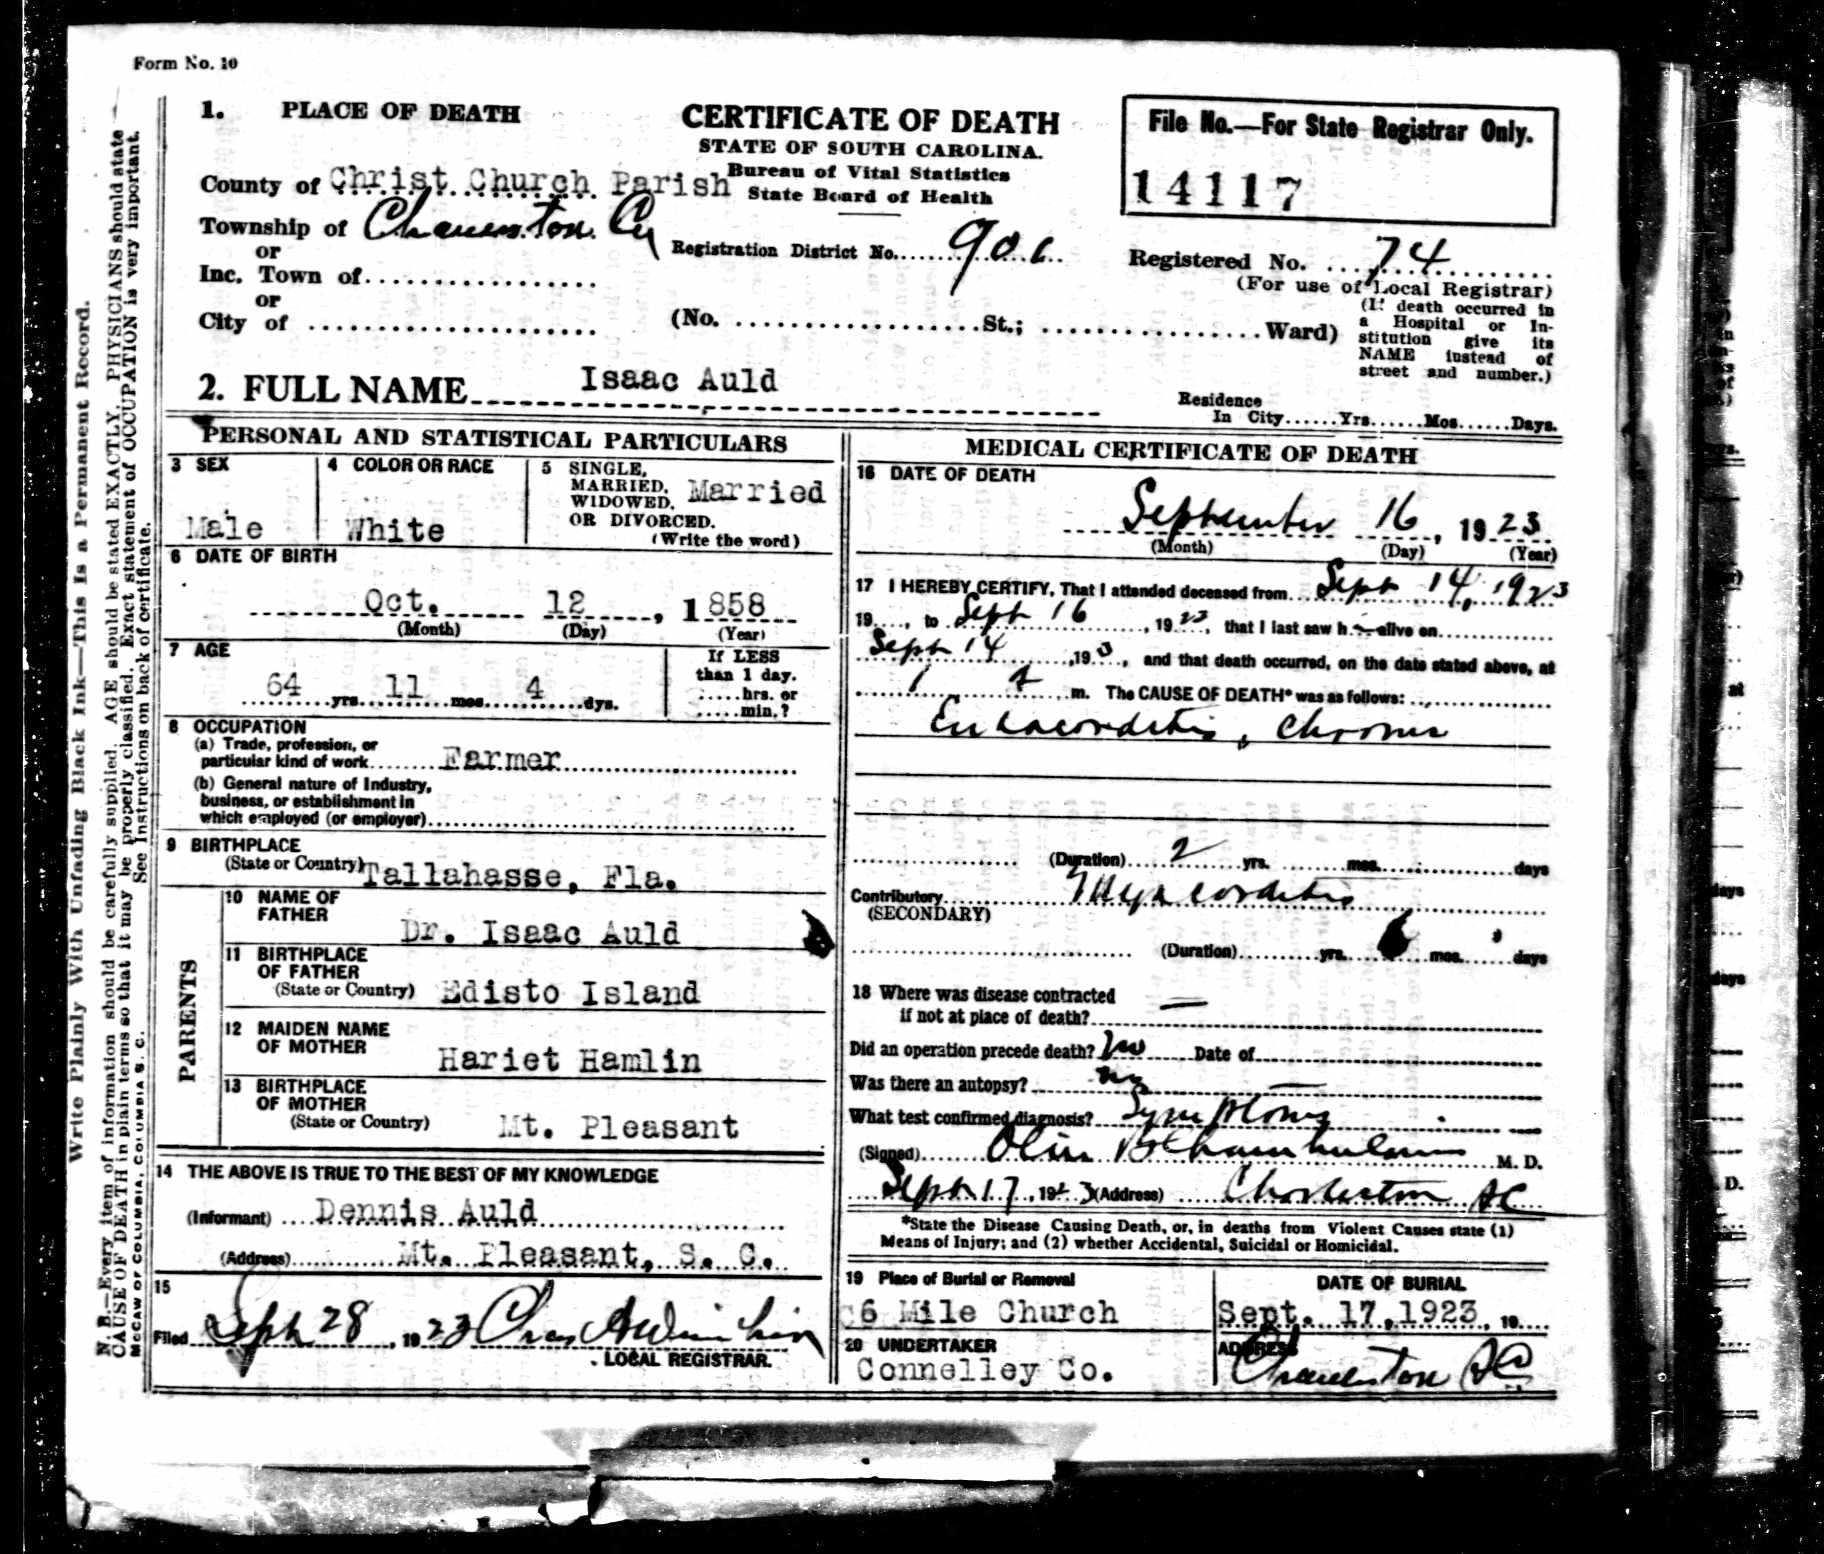 Form No. 10
1. PLACE OF DEATH
CERTIFICATE OF DEATH
STATE OF SOUTH CAROLINA.
Bureau of Vital Statistics
State Board of Health
File No.—For State Registrar Only.
14117
County of Christ Church Parish
Township of Charleston Co
or
Inc. Town of
or
City of
Registration District No. 906
Registered No. 74
(For use of Local Registrar)
(No. St.; Ward)
(If death occurred in
a Hospital or In-
stitution give its
NAME instead of
street and number.)
2. FULL NAME Isaac Auld
Residence
In City Yrs. Mos. Days.
PERSONAL AND STATISTICAL PARTICULARS
3 SEX
Male
4 COLOR OR RACE
White
5 SINGLE,
MARRIED,
WIDOWED,
OR DIVORCED.
(Write the word)
Married
6 DATE OF BIRTH
Oct. 12, 1858
(Month) (Day) (Year)
7 AGE
64 yrs. 11 mos. 4 dys.
If LESS
than 1 day.
hrs. or
min.?
8 OCCUPATION
(a) Trade, profession, or
particular kind of work Farmer
(b) General nature of Industry,
business, or establishment in
which employed (or employer)
9 BIRTHPLACE
(State or Country) Tallahasse, Fla.
PARENTS
10 NAME OF
FATHER
Dr. Isaac Auld
11 BIRTHPLACE
OF FATHER
(State or Country) Edisto Island
12 MAIDEN NAME
OF MOTHER
Hariet Hamlin
13 BIRTHPLACE
OF MOTHER
(State or Country) Mt. Pleasant
14 THE ABOVE IS TRUE TO THE BEST OF MY KNOWLEDGE
(Informant) Dennis Auld
(Address) Mt. Pleasant, S. C.
15
Filed Sept 28, 1923
LOCAL REGISTRAR.
MEDICAL CERTIFICATE OF DEATH
16 DATE OF DEATH
September 16, 1923
(Month) (Day) (Year)
17 I HEREBY CERTIFY, That I attended deceased from Sept 14, 1923
19, to Sept 16, 1923, that I last saw h alive on
Sept 14, 193, and that death occurred, on the date stated above, at
m. The CAUSE OF DEATH* was as follows:
Endocarditis, Chronic
(Duration) 2 yrs. mos. days
Contributory Myocarditis
(SECONDARY)
(Duration) yrs. 6 mos. days
18 Where was disease contracted
if not at place of death? —
Did an operation precede death? No Date of
Was there an autopsy? no
What test confirmed diagnosis? Symptoms
(Signed) Olin B Chamberlain M. D.
Sept 17, 1923 (Address) Charleston SC
*State the Disease Causing Death, or, in deaths from Violent Causes state (1)
Means of Injury; and (2) whether Accidental, Suicidal or Homicidal.
19 Place of Burial or Removal
6 Mile Church
DATE OF BURIAL
Sept. 17, 1923, 19
20 UNDERTAKER
Connelley Co.
ADDRESS
Charleston SC
Write Plainly With Unfading Black Ink—This is a Permanent Record.
N. B.—Every item of information should be carefully supplied. AGE should be stated EXACTLY. PHYSICIANS should state
CAUSE OF DEATH in plain terms so that it may be properly classified. Exact statement of OCCUPATION is very important.
See Instructions on back of certificate.
McCAW OF COLUMBIA, COLUMBIA S. C.